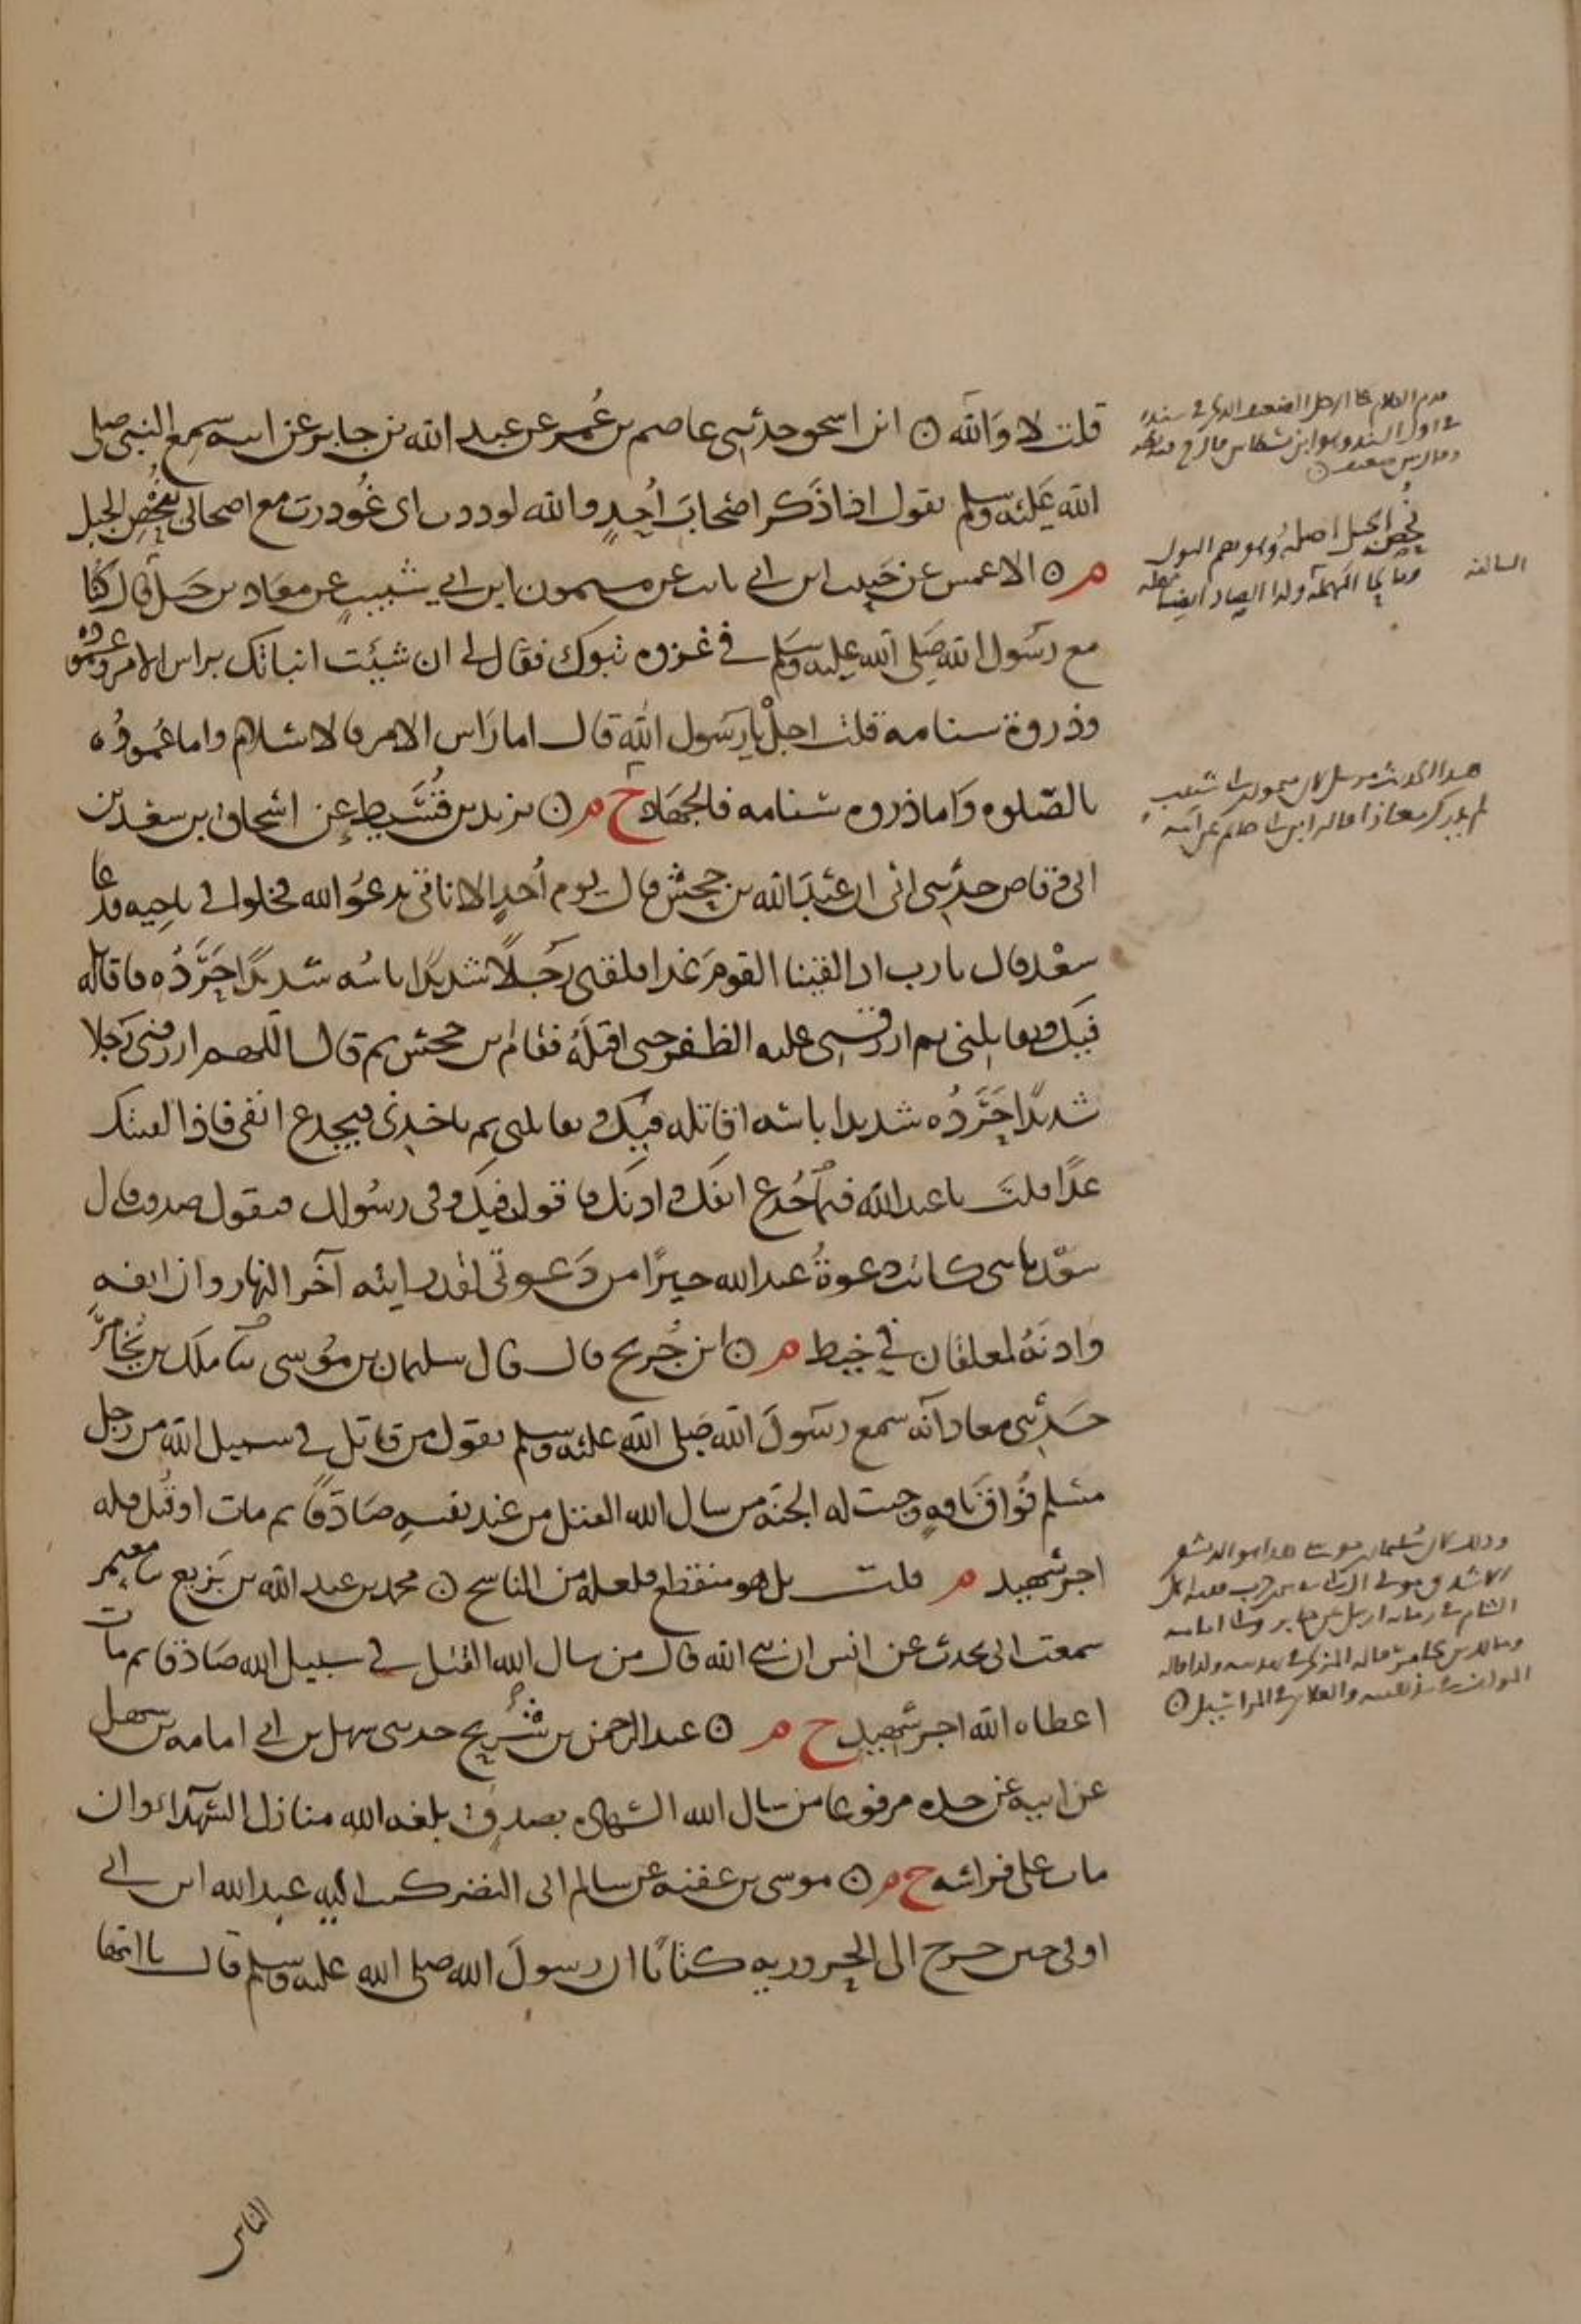 قلت لا والله ۞ ابن اسحق حدثني عاصم بن عُمر عن عبد الله بن جابر عن ابيه سمع النبي صلى
الله عليه وسلم يقول اذا ذكر اصحاب اُحدٍ والله لوددت اى غُودرت مع اصحابى بنُحْصِ الجبل
م ۞ الاعمش عن حبيب ابن ابي ثابت عن ميمون ابن ابي شبيبٍ عن معاذ بن جبل قال كنا
مع رسُول الله صلى الله عليه وسلم في غزوه تبوك فقال لى ان شيئت انباتك براس الامر وعموده
وذروة سنامه قلت اجلْ يا رسول الله قال اما راس الامر فالاسلام واما عموده
فالصّلوه واما ذروه سنامه فالجهاد خ م ۞ يزيد بن قُسَيط عن اسحاق بن سعد بن
ابى وقاص حدثنى ابى ان عبد الله بن جحش قال يوم اُحدٍ الا تاتى ندعُوا الله فخلوا في ناحيه فدعا
سعْد فقال يارب اذا لقينا القومَ غدا فلقنى رجُلًا شديدًا باسُه شديدًا حَرَّدُه فاقاتله
فيك ويقاتلنى ثم ارزقنى عليه الظفر حتى اقتلهُ فقام ابن جحش ثم قال اللهم ارزقنى رجلا
شديدًا حَرَّدُه شديدا باسه اقاتله فيك ويقاتلنى ثم ياخذنى فيجدع انفى فاذا لقيتك
غدًا قلتَ يا عبد الله فيم جُدع انفك واذنك فاقول فيك وفى رسُولك فيقول صدقت قال
سعْد يا بنى كانت دعوةُ عبد الله خيرًا من دَعوتى لقد رايته آخر النهار وان انفه
واذنَهُ لمعلقان في خيط م ۞ ابن جُريج قال قال سليمان بن موُسى نا مالك بن يُخامر
حدثنى معاذ انه سمع رسولَ الله صلى الله عليه وسلم يقول من قاتل في سبيل الله من رجل
مسلم فُواق ناقهٍ وجبت له الجنّه من سال الله القتل من عند نفسهِ صَادقًا ثم مات او قُتل فله
اجر شهيد م قلت بل هو منقطع فلعله من الناسخ ۞ محمد بن عبد الله بن بَزيع نا معتمر
سمعت ابى يحدث عن انس ان نبي الله قال من سال الله القتل في سبيل الله صَادقا ثم مات
اعطاه الله اجر شهيد خ م ۞ عبد الرحمن بن شُريح حدثنى سهل بن ابي امامه بن سهل
عن ابيه عن جده مرفوعا من سال الله الشهاده بصدقٍ بلغه الله منازل الشهدآء وان
مات على فراشه خ م ۞ موسى بن عقبه عن سالم ابى النضر كتب اليه عبد الله ابن ابي
اوفى حين خرج الى الحروريه كتابًا ان رسولَ الله صلى الله عليه وسلم قال يا ايها
الناس
نُحص الجبل اصله وهو بضم النون
وبالحا المهملة ولذا الصاد ايضا
هذا الحديث مرسل لان ميمون بن ابي شبيب
لم يدرك معاذا قاله ابن ابي حاتم عن ابيه